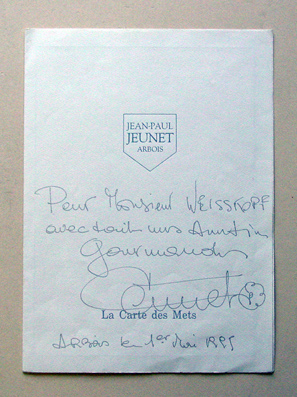 JEAN-PAUL
JEUNET
ARBOIS
Pour Monsieur WEISSKOPF
avec toutes mes Amitiés
Gourmandes
Jeunet
La Carte des Mets
Arbois le 1er Mai 1995